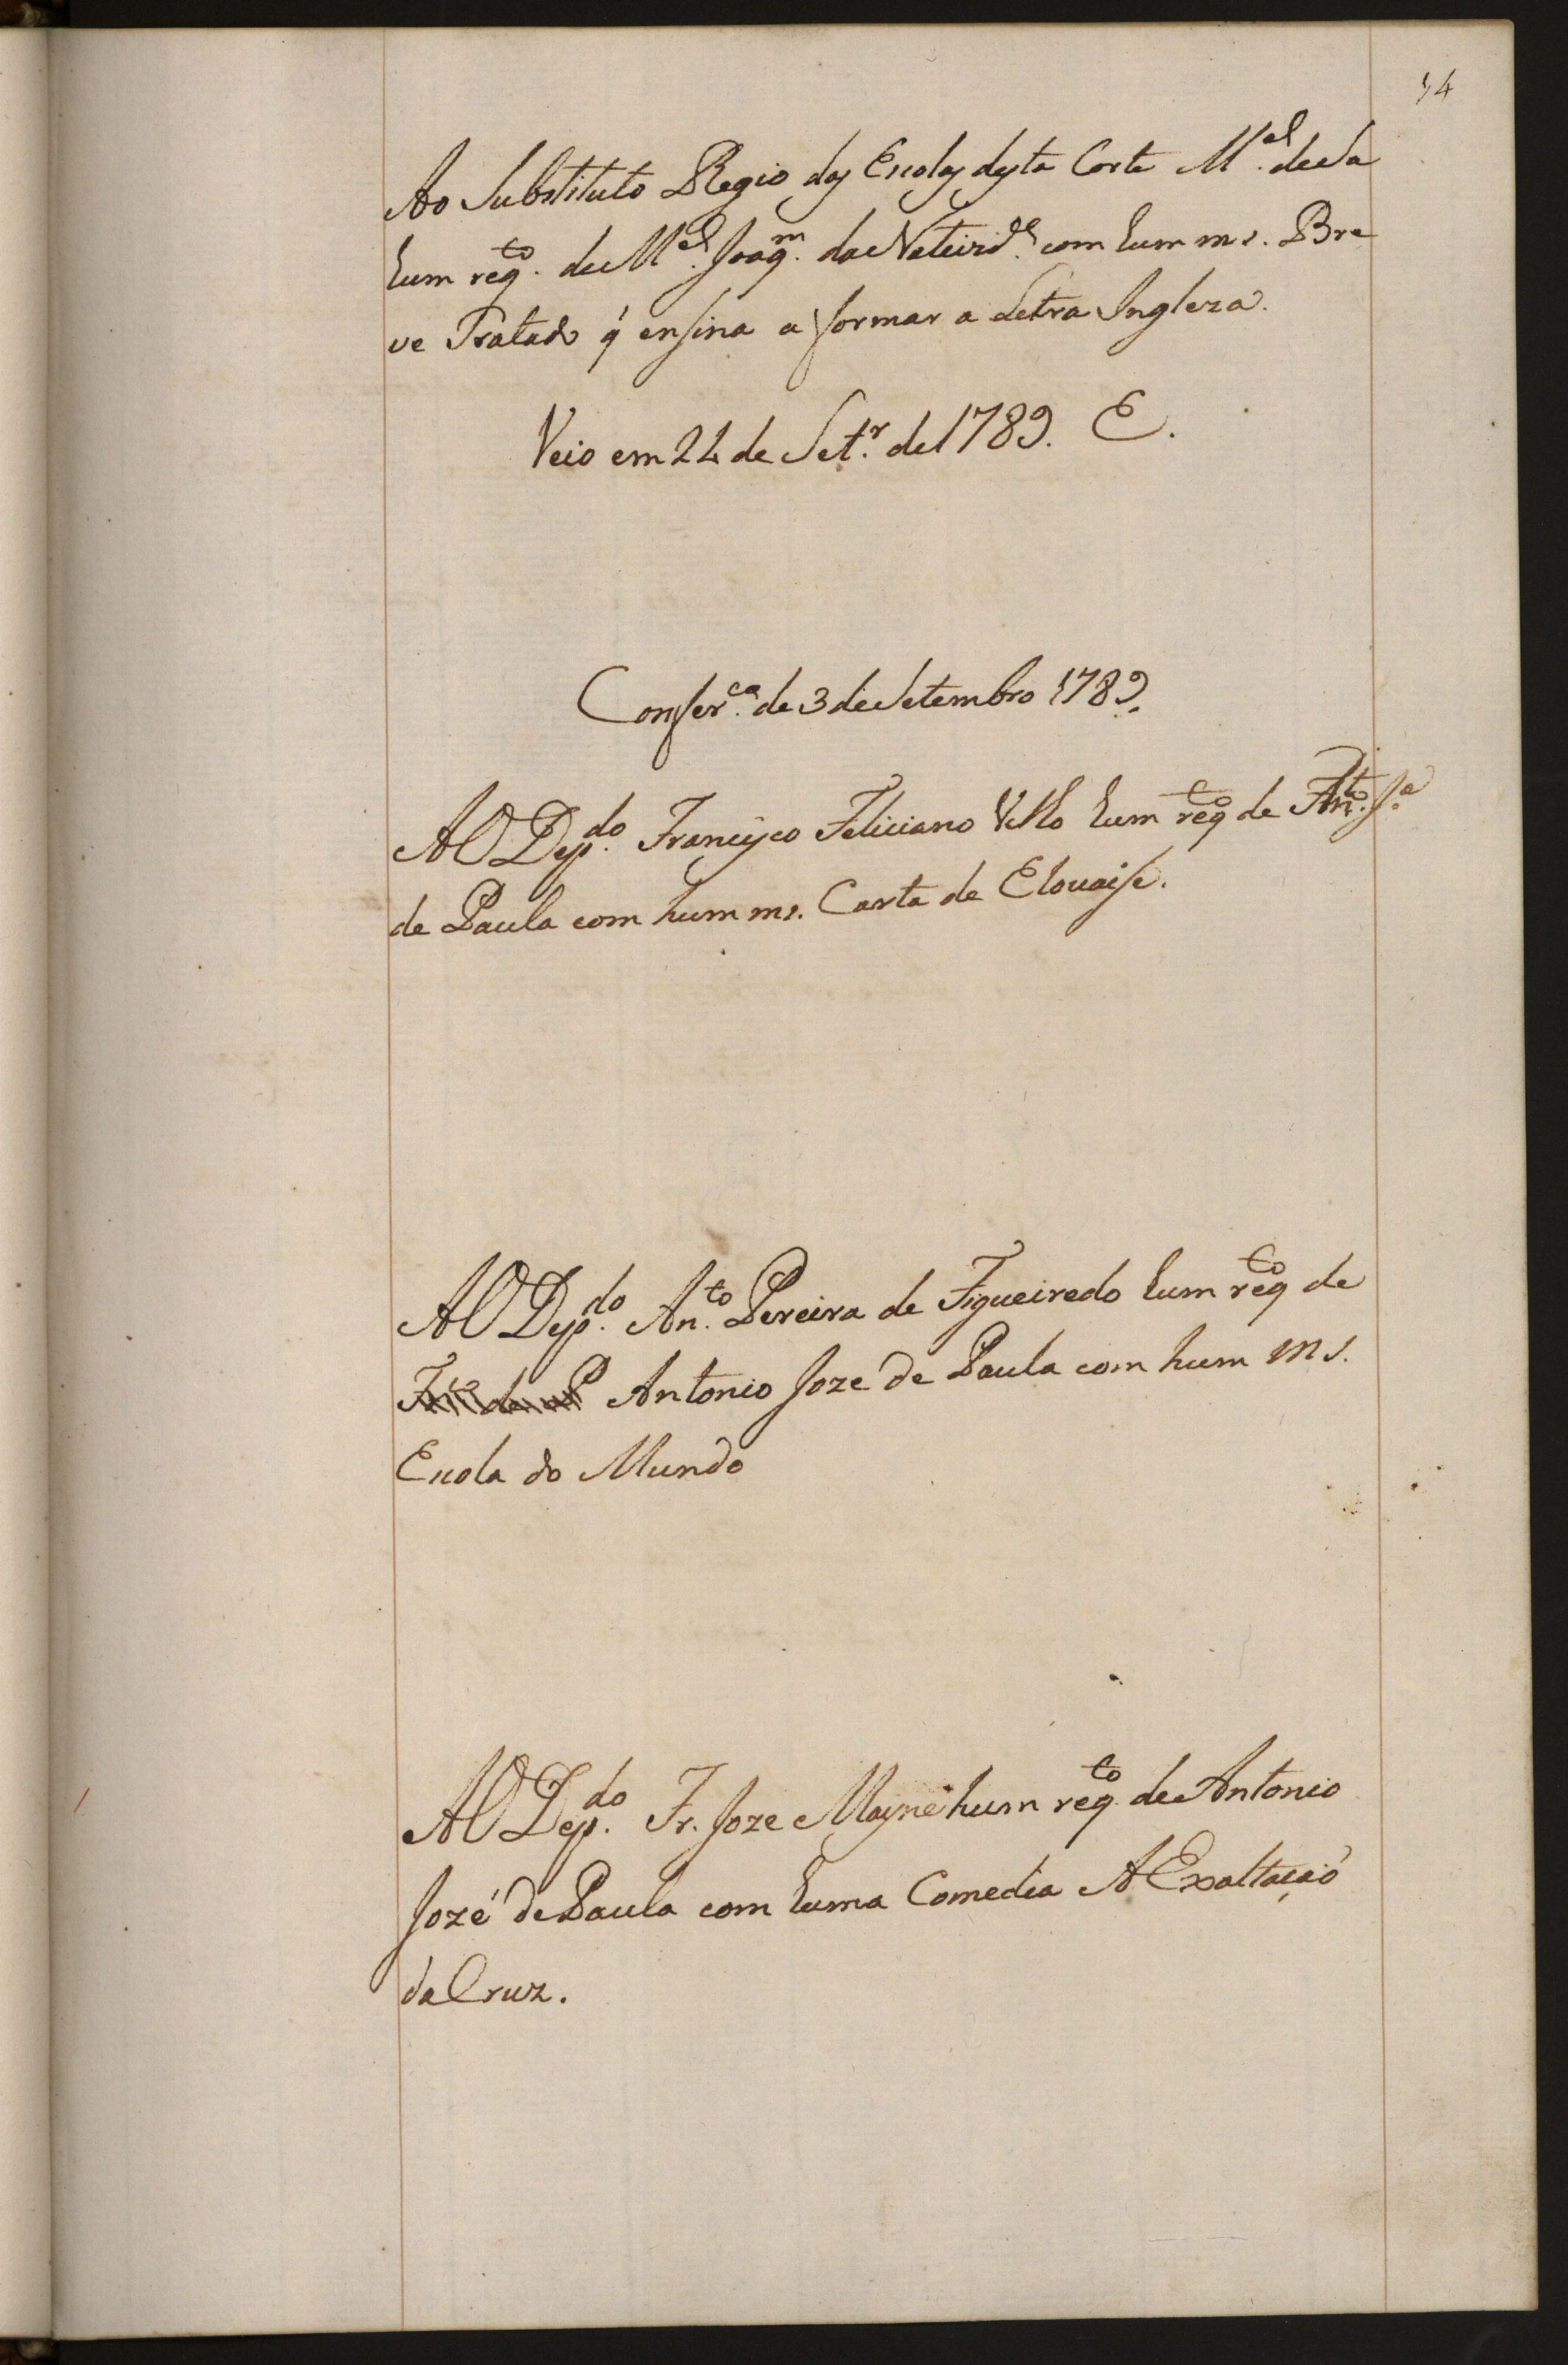 14
Ao Substituto Regio das Escolas desta Corte M.el de Sa
hum req.to de M.el Joaq.m da Nativid.e com hum ms. Bre
ve Tratado q́ ensina a formar a Letra Ingleza.
Veio em 24 de Set.r de 1789. E.
Confer.ca de 3 de Setembro 1789.
Ao Dep.do Francisco Feliciano Velho hum req.to de Ant.o J.e
de Paula com hum ms. Carta de Elouaise.
Ao Dep.do An.to Pereira de Figueiredo hum req.to de
Antonio Joze de Paula com hum ms.
Escola do Mundo
Ao Dep.do Fr. Joze Mayne hum req.to de Antonio
Jozé de Paula com huma Comedia A Exaltaçaõ
da Cruz.